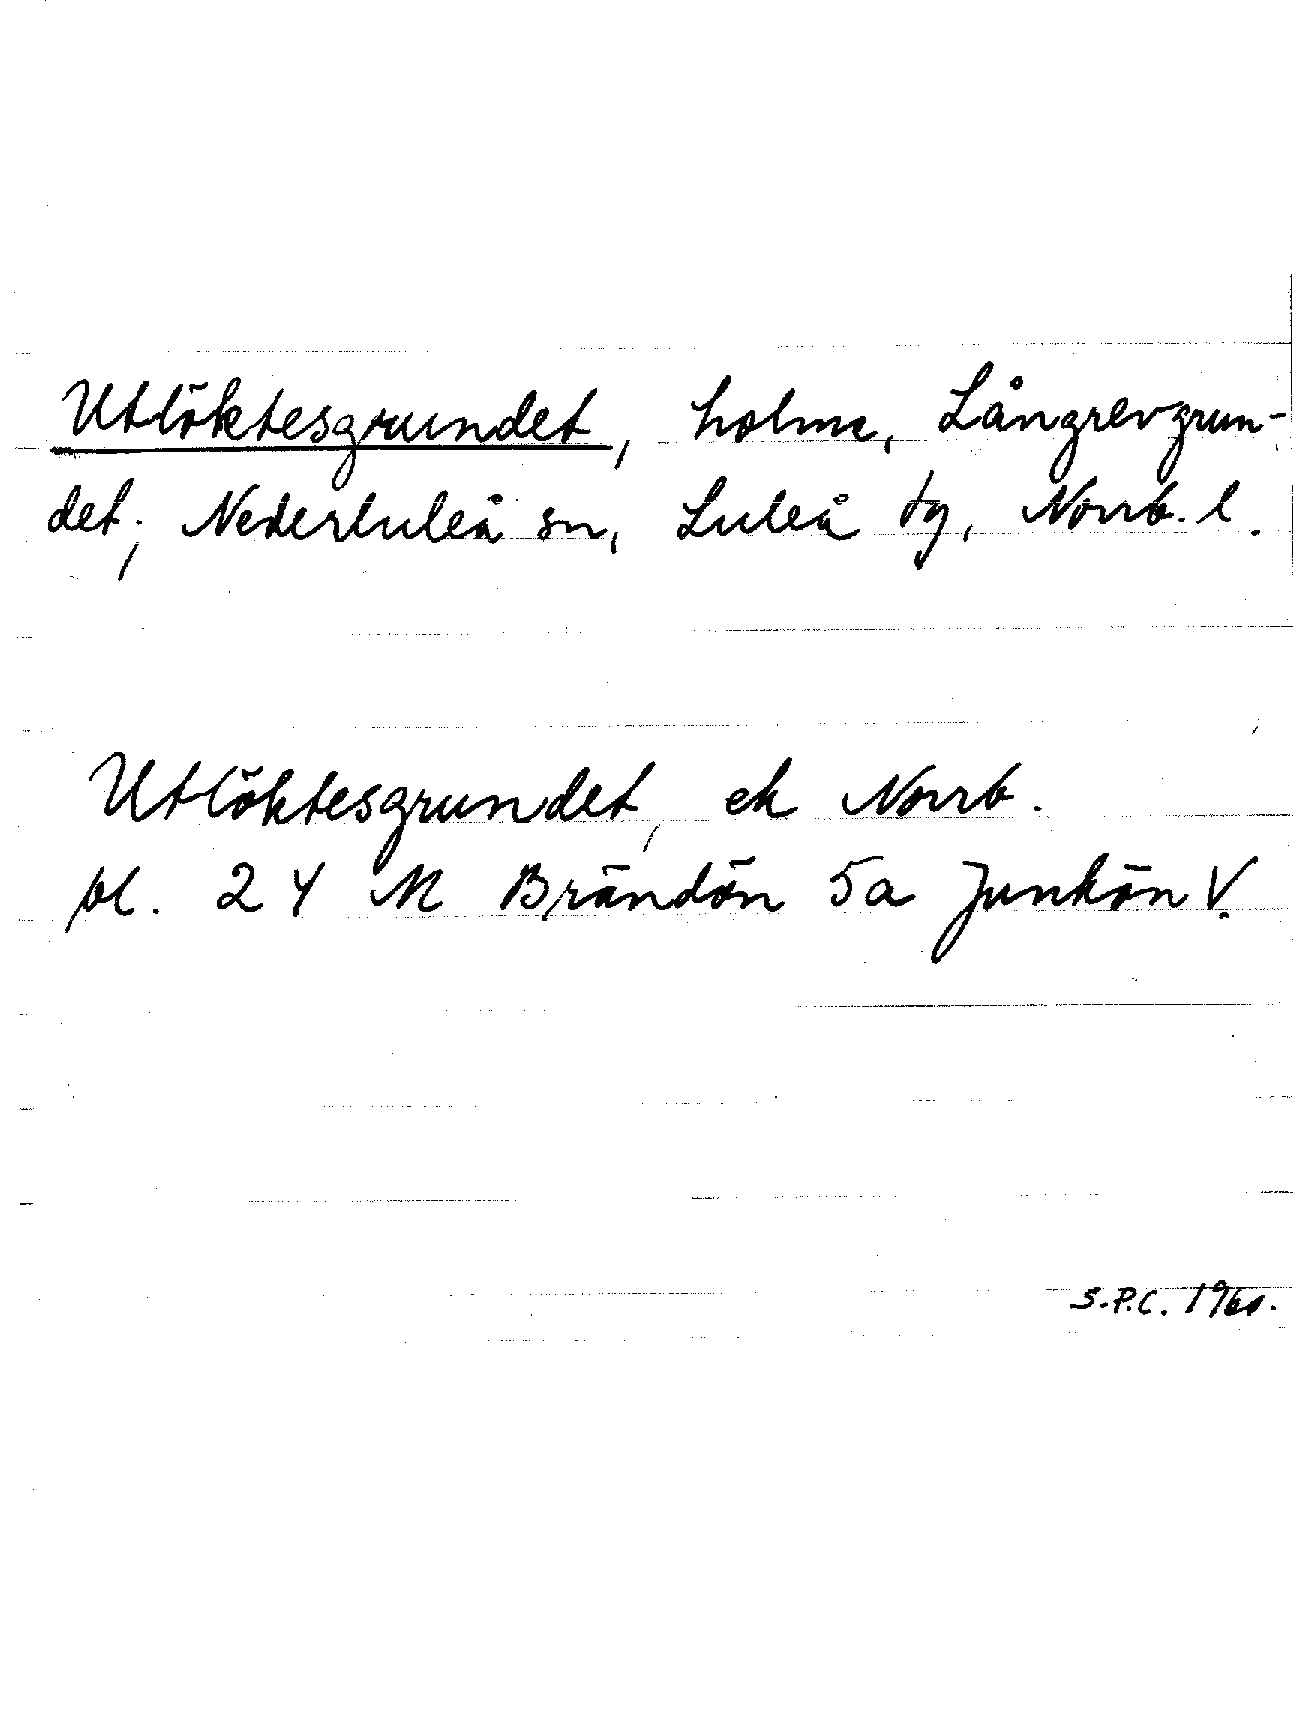 Utlöktesgrundet, holme, Långrevgrun-
det, Nederluleå sn, Luleå tg, Norrb. l.
Utlöktesgrundet, ek Norrb.
bl. 24 M Brändön 5a Junkön V.
S.P.C. 1960.